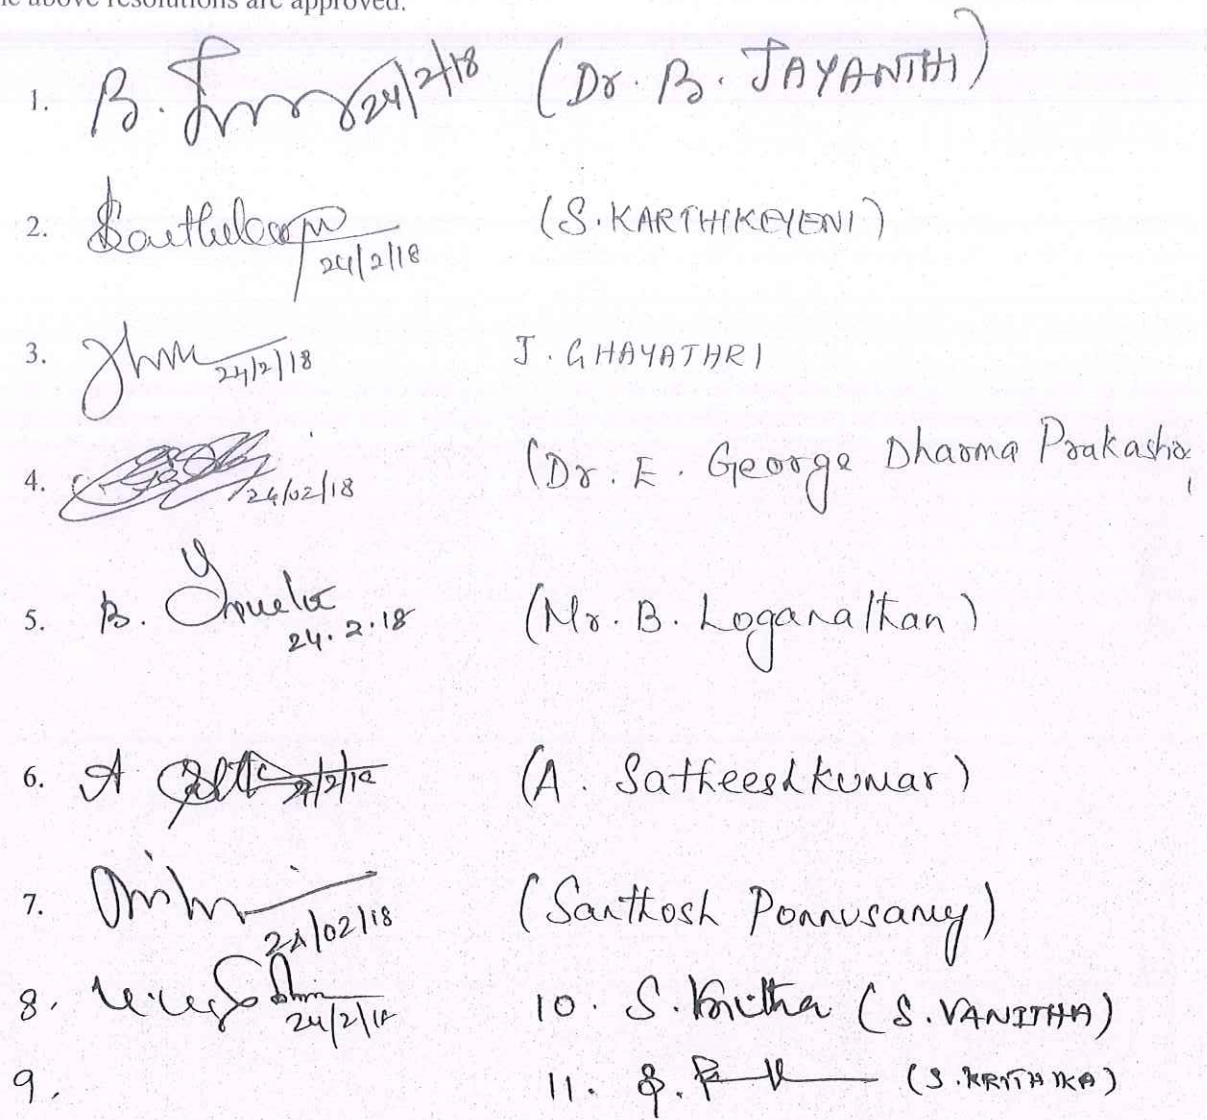 above resolutions are approved.
1. B. 24/2/18 (Dr. B. JAYANTHI)
2. 24/2/18 (S. KARTHIKEYENI)
3. 24/2/18 J. GHAYATHRI
4. 24/02/18 (Dr. E. George Dharma Prakash
5. B. 24.2.18 (Mr. B. Loganathan)
6. A (A. Satheeshkumar)
7. 24/02/18 (Santhosh Ponnusamy)
8. 24/2/18 10. S. Vanitha (S. VANITHA)
9. 11. S. (S. KRITHIKA)